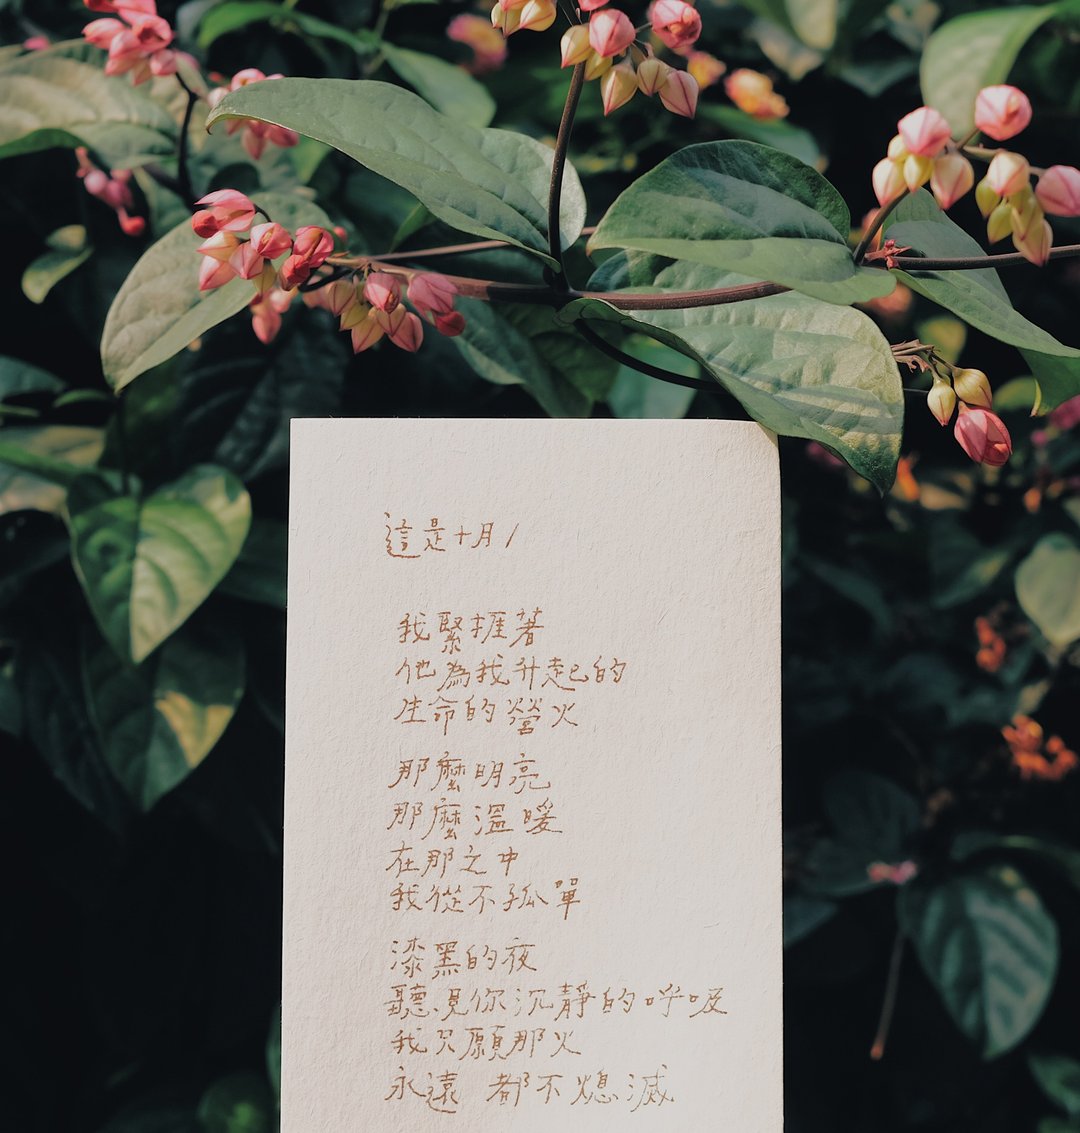 這是十月/
我緊捱著
他為我升起的
生命的營火
那麼明亮
那麼溫暖
在那之中
我從不孤單
漆黑的夜
聽見你沉靜的呼吸
我只願那火
永遠 都不熄滅